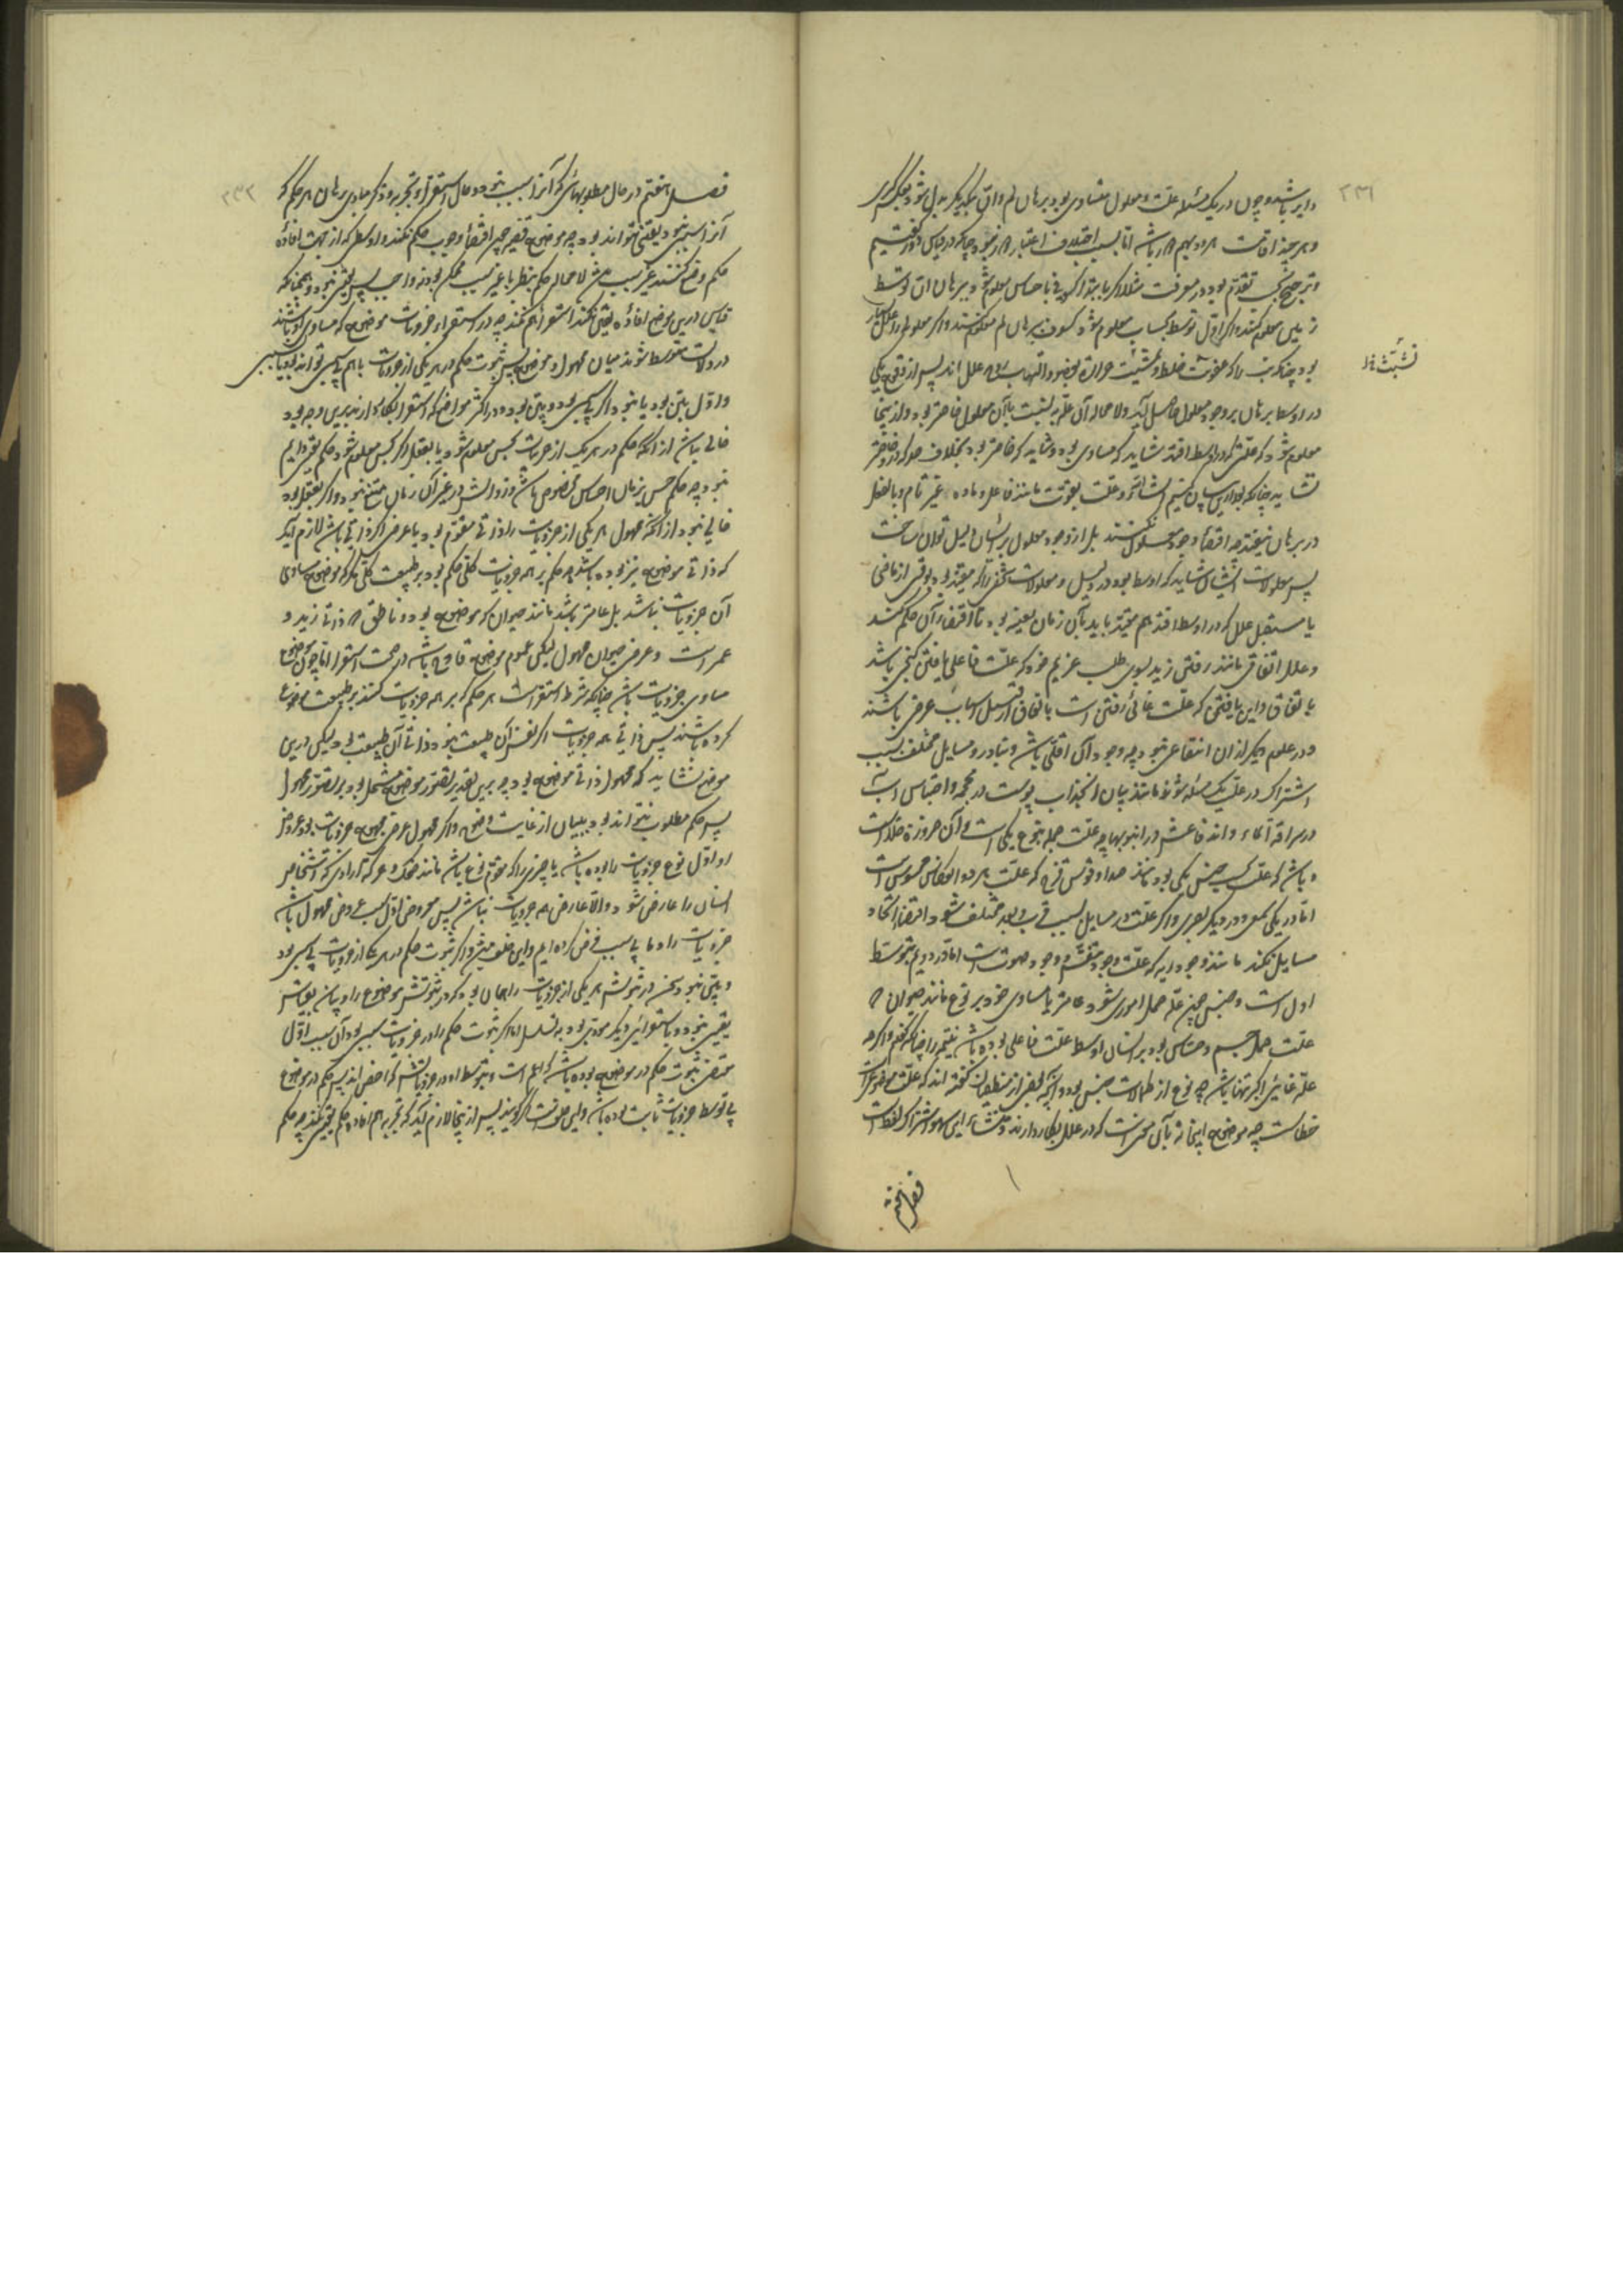 ۲۳۱
دایر باشد و چون در یک مسئله علت و معلول متساوی بود برهان لم و ان بیکدیگر بدل شود بحکم
و هر چند افادت هر دو بهم باشد اما بسبب اختلاف اعتبار دور نبود چنانکه در قیاس دور گفتیم
و ترجیح بحسب تقدم بود در معرفت مثلا اگر بابتدا کسوف باحساس معلوم شود ببرهان ان توسط
زمین معلوم کنند و اگر اول توسط بحساب معلوم شود کسوف ببرهان لم معلوم کنند و اگر معلول را علل بسیار
بود چنانکه تب را که عفونت خلط و حرارت علل اند پس از وقوع یکی
در اوسط برهان بر وجود معلول حاصل آید ولا محاله آن علت به نسبت با آن معلول خاصتر بود و از اینجا
معلوم شود که علتی که در اوسط افتد شاید که مساوی بود و شاید که خاصتر بود بخلاف
نشاید چنانکه بعد ازین بیان کنیم انشاالله و علت بقوت مانند فاعل و ماده غیر تام و بالفعل
در برهان نیفتد چه اقتضاء وجود معلول نکنند بل از وجود معلول بر ایشان دلیل توان ساخت
پس معلولات ایشان شاید که اوسط بود در دلیل و معلولات شخصی را که مقید بود بوقتی از ماضی
یا مستقبل علل که در اوسط افتد هم مقید باید بآن زمان بعینه بود تا اقتضاء آن حکم کند
و علل اتفاقی مانند رفتن زید بسوی طلب غریم خود که علت فاعلی یافتن گنجی باشد
باتفاق و این یافتن که علت غائی رفتن است باتفاق از قبیل اسباب عرضی باشند
و در علوم دیگر ازان انتفاعی نبود چه وجود آن اقلی باشد و نادر و مسایل مختلف بسبب
اشتراک در علت یک مسئله شوند مانند بیان انجذاب پوست در محجمه و احتباس آب
در سراقة الماء و اندفاعش در انبوبها چه علت جمله بنوع یکی است و آن ضرورة خلا است
و باشد که علت بحسب جنس یکی بود مانند صدا و قوس قزح که علت هر دو انعکاس محسوس است
اما در یکی سمعی و در دیگر بصری و اگر علت در مسایل بسبب قرب و بعد مختلف شود اقتضاء اتحاد
مسایل نکند مانند وجود ریه که علت وجود تنفس و وجود صوت است اما در دویم بتوسط
اول است و جنس چون علت حمل اموری شود عامتر یا مساوی خود بر نوع مانند حیوان که
علت حمل جسم و حساس بود بر انسان اوسط علت فاعلی بوده باشد نتیجه را چنانکه گفتیم و اگر چه
علت غایی اکبر تنها باشد چه نوع از کمالات جنس بود و آنچه بعضی از منطقیان گفته اند که علت موضوعی است
خطاست چه موضوع اینجا نه بآن معنی است که در علل بکار دارند و منشاء این سهو اشتراک لفظ است
فصل هفتم
۲۳۲
فصل هفتم در حال مطلوبهائی که آنرا سبب نبود و حال استقرا و تجربه و ذکر مبادی برهان هر حکم که
آنرا سببی نبود یقینی نتواند بود چه موضوع قضیه چون اقتضاء وجوب حکم نکند و اوسطی که از جهت افاده
حکم وضع کنند غیر سبب باشد لا محاله حکم بنظر با غیر سبب ممکن بود نه واجب پس یقینی نبود و همچنانکه
قیاس درین موضع افاده یقین نکند استقرا هم نکند چه در استقرا جزویات موضوع که مساوی او باشند
در دلالت متوسط شوند میان محمول و موضوع پس ثبوت حکم در هر یکی از جزویات یا هم بی سببی تواند بود یا بسببی
و اول بین بود یا نبود و اگر بی سببی بود و بین بود و در اکثر مواضع که استقرا بکار دارند برین وجه بود
خالی نباشد از آنکه حکم در هر یک از جزویات بحس معلوم شود یا بعقل و اگر بحس معلوم شود حکم یقینی دایم
نبود چه حکم حس بزمان احساس مخصوص باشد و زوالش در غیر آن زمان ممتنع نبود و اگر بعقل بود
خالی نبود از آنکه محمول هر یکی از جزویات را ذاتی مقوم بود یا عرضی اگر ذاتی باشد لازم آید
که ذاتی موضوع نیز بوده باشد چه حکم بر همه جزویات کلی حکم بود بر طبیعت کلی مگر که موضوع مساوی
آن جزویات نباشد بل عامتر باشد مانند حیوان که موضوع بود و ناطق که ذاتی زید و
عمر است و عرضی حیوان محمول لیکن عموم موضوع قادح باشد در صحت استقرا اما چون موضوع
مساوی جزویات باشد چنانکه شرط استقراست هر حکم که بر همه جزویات کنند بر طبیعت موضوع
کرده باشند پس ذاتی همه جزویات اگر نفس آن طبیعت نبود ذاتی آن طبیعت بود لیکن درین
موضع نشاید که محمول ذاتی موضوع بود چه برین تقدیر تصور موضوع مشتمل بود بر تصور محمول
پس حکم مطلوب نتواند بود ببیان از غایت وضوح و اگر محمول عرضی همه جزویات بود و عروض
او اول نوع جزویات را بوده باشد یا چیزی را که مقوم نوع باشد مانند ضحک و حرکت ارادی که اشخاص
انسان را عارض شود والا عارض همه جزویات نباشد پس معروض اول سبب عروض محمول باشد
جزویات را و ما بی سبب فرض کرده ایم و این خلف باشد و اگر ثبوت حکم در هر یک از جزویات بی سببی بود
و بین نبود سخن در ثبوتش هر یکی از جزویات را همان بود که در ثبوتش موضوع را و بیان بقیاس
یقینی نبود و باستقرائی دیگر مودی بود به تسلسل اما اگر ثبوت حکم را در جزویات سببی بود آن سبب اول
مقتضی ثبوت حکم در موضوع بوده باشد که اعم است و بتوسط او در جزویاتش که اخص اند پس حکم در موضوع
بی توسط جزویات ثابت بوده باشد و این خلف است اگر گویند پس ازینجا لازم آید که تجربه هم افاده حکم یقینی نکند چه حکم